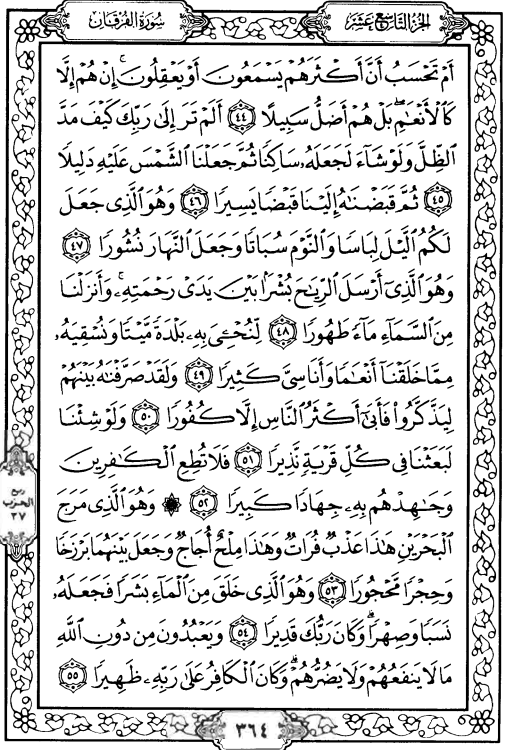 سُورَةُ الفُرْقَانِ
الجُزْءُ التَّاسِعَ عَشَرَ
أَمْ تَحْسَبُ أَنَّ أَكْثَرَهُمْ يَسْمَعُونَ أَوْ يَعْقِلُونَ ۚ إِنْ هُمْ إِلَّا
كَالْأَنْعَٰمِ ۖ بَلْ هُمْ أَضَلُّ سَبِيلًا ٤٤ أَلَمْ تَرَ إِلَىٰ رَبِّكَ كَيْفَ مَدَّ
الظِّلَّ وَلَوْ شَآءَ لَجَعَلَهُۥ سَاكِنًا ثُمَّ جَعَلْنَا الشَّمْسَ عَلَيْهِ دَلِيلًا
٤٥ ثُمَّ قَبَضْنَٰهُ إِلَيْنَا قَبْضًا يَسِيرًا ٤٦ وَهُوَ الَّذِى جَعَلَ
لَكُمُ الَّيْلَ لِبَاسًا وَالنَّوْمَ سُبَاتًا وَجَعَلَ النَّهَارَ نُشُورًا ٤٧
وَهُوَ الَّذِىٓ أَرْسَلَ الرِّيَٰحَ بُشْرًۢا بَيْنَ يَدَىْ رَحْمَتِهِۦ ۚ وَأَنزَلْنَا
مِنَ السَّمَآءِ مَآءً طَهُورًا ٤٨ لِّنُحْـِۧىَ بِهِۦ بَلْدَةً مَّيْتًا وَنُسْقِيَهُۥ
مِمَّا خَلَقْنَآ أَنْعَٰمًا وَأَنَاسِىَّ كَثِيرًا ٤٩ وَلَقَدْ صَرَّفْنَٰهُ بَيْنَهُمْ
لِيَذَّكَّرُوا۟ فَأَبَىٰٓ أَكْثَرُ النَّاسِ إِلَّا كُفُورًا ٥٠ وَلَوْ شِئْنَا
لَبَعَثْنَا فِى كُلِّ قَرْيَةٍ نَّذِيرًا ٥١ فَلَا تُطِعِ الْكَٰفِرِينَ
وَجَٰهِدْهُم بِهِۦ جِهَادًا كَبِيرًا ٥٢ ۞ وَهُوَ الَّذِى مَرَجَ
الْبَحْرَيْنِ هَٰذَا عَذْبٌ فُرَاتٌ وَهَٰذَا مِلْحٌ أُجَاجٌ وَجَعَلَ بَيْنَهُمَا بَرْزَخًا
وَحِجْرًا مَّحْجُورًا ٥٣ وَهُوَ الَّذِى خَلَقَ مِنَ الْمَآءِ بَشَرًا فَجَعَلَهُۥ
نَسَبًا وَصِهْرًا ۗ وَكَانَ رَبُّكَ قَدِيرًا ٥٤ وَيَعْبُدُونَ مِن دُونِ اللَّهِ
مَا لَا يَنفَعُهُمْ وَلَا يَضُرُّهُمْ ۗ وَكَانَ الْكَافِرُ عَلَىٰ رَبِّهِۦ ظَهِيرًا ٥٥
ربع
الحزب
٣٧
٣٦٤